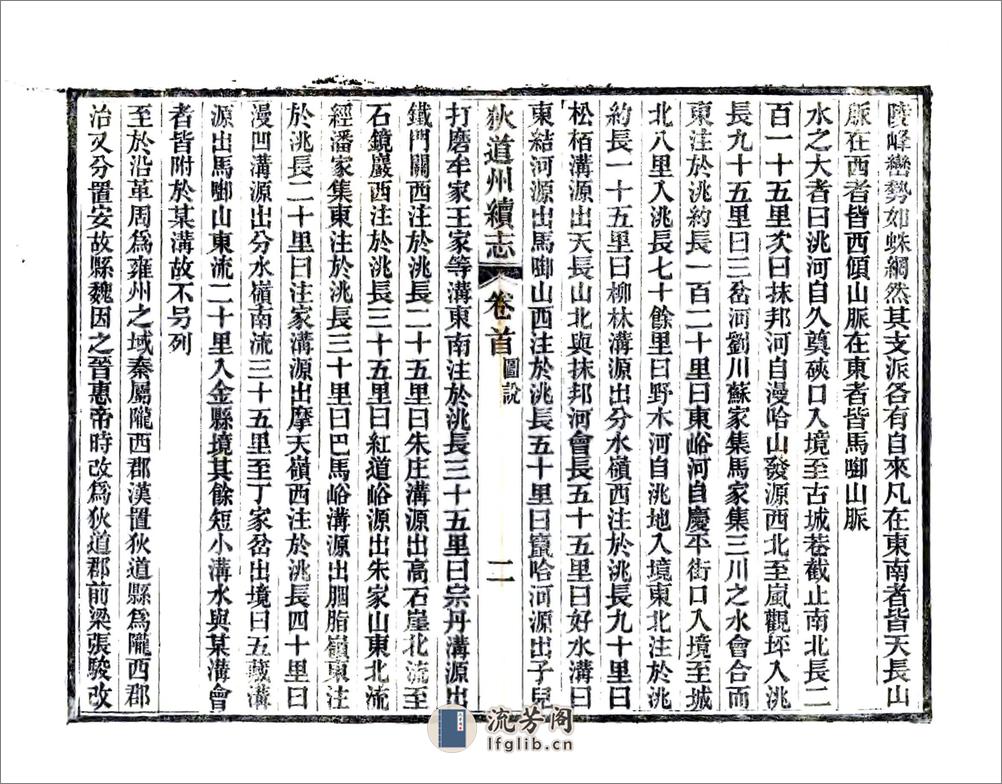 陵峰巒勢如蛛網然其支派各有自來凡在東南者皆天長山
脈在西者皆西傾山脈在東者皆馬啣山脈
水之大者曰洮河自久奠硤口入境至古城巷截止南北長二
百一十五里次曰抹邦河自漫哈山發源西北至嵐觀坪入洮
長九十五里曰三岔河劉川蘇家集馬家集三川之水會合而
東注於洮約長一百二十里曰東峪河自慶平街口入境至城
北八里入洮長七十餘里曰野木河自洮地入境東北注於洮
約長一十五里曰柳林溝源出分水嶺西注於洮長九十里曰
松栢溝源出天長山北與抹邦河會長五十五里曰好水溝曰
東結河源出馬啣山西注於洮長五十里曰竄哈河源出子兒
狄道州續志 卷首 圖說 二
打磨牟家王家等溝東南注於洮長三十五里曰宗丹溝源出
鐵門關西注於洮長二十五里曰朱庄溝源出高石崖北流至
石鏡巖西注於洮長三十五里曰紅道峪源出朱家山東北流
經潘家集東注於洮長三十里曰巴馬峪溝源出胭脂嶺東注
於洮長二十里曰注家溝源出摩天嶺西注於洮長四十里曰
漫凹溝源出分水嶺南流三十五里至丁家岔出境曰五藏溝
源出馬啣山東流二十里入金縣境其餘短小溝水與某溝會
者皆附於某溝故不另列
至於沿革周為雍州之域秦屬隴西郡漢置狄道縣為隴西郡
治又分置安故縣魏因之晉惠帝時改為狄道郡前梁張駿改
流芳阁
lfglib.cn